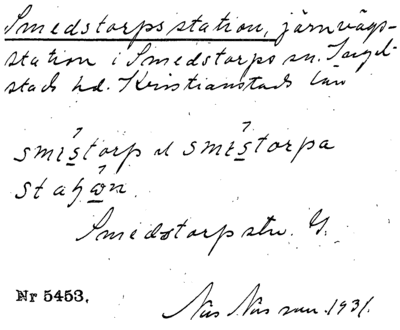 Smedstorps station, järnvägs-
station i Smedstorps sn. Ingel-
stads hd. Kristianstads län
smístorp el smístorpa
staɧón.
Smedstorp stn. G.
Nr 5453.
Nils Nilsson. 1931.